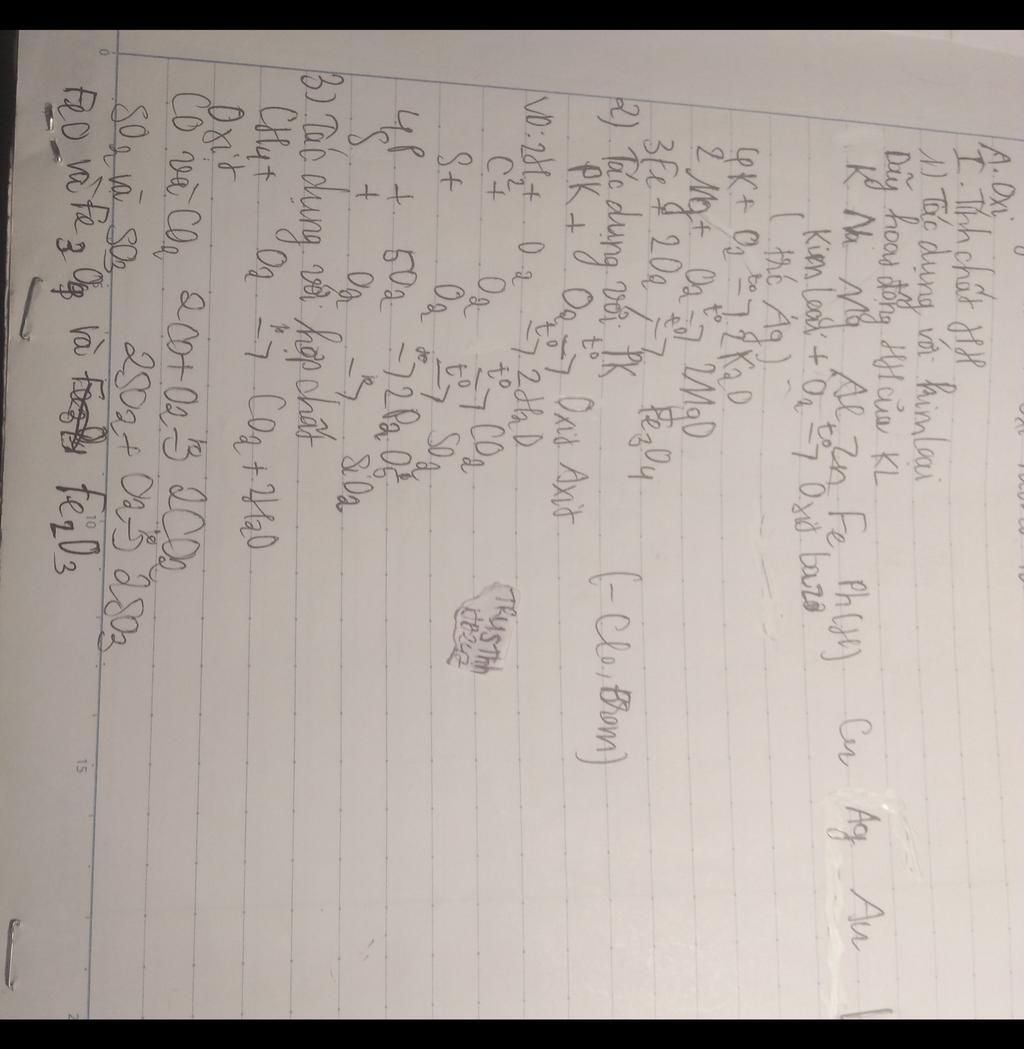 A. Oxi
I. Tính chất HH
1) Tác dụng với kim loại
Dãy hoạt động HH của KL
K Na Mg Al Zn Fe Pb (H) Cu Ag Au
Kim loại + O2 t°→ Oxit bazơ
(trừ Ag)
4K + O2 t°→ 2K2O
2Mg + O2 t°→ 2MgO
3Fe + 2O2 t°→ Fe3O4
2) Tác dụng với PK (-Clo, Brom)
PK + O2 t°→ Oxit Axit
VD: 2H2 + O2 t°→ 2H2O
C + O2 t°→ CO2
S + O2 t°→ SO2
4P + 5O2 t°→ 2P2O5
S + O2 t°→ SiO2
3) Tác dụng với hợp chất
CH4 + O2 t°→ CO2 + 2H2O
Oxit
CO và CO2 2CO + O2 t°→ 2CO2
SO2 và SO3 2SO2 + O2 t°→ 2SO3
FeO và Fe3O4 và Fe2O3
0
10
15